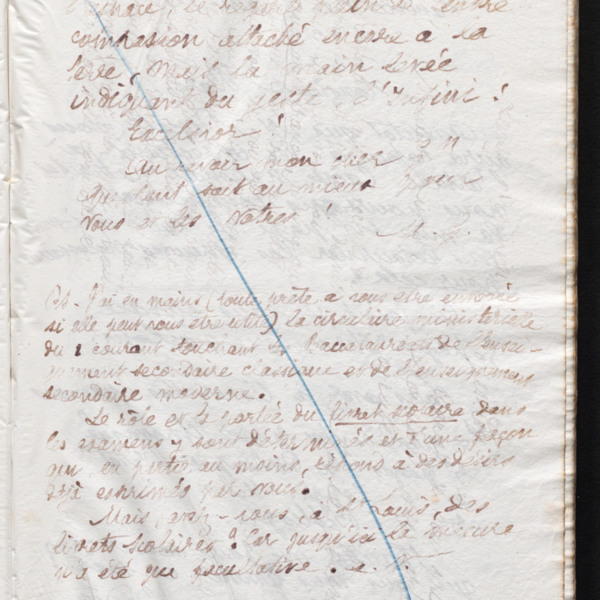 compassion attaché encore à la
terre, mais la main levée
indiquant du geste l'Infini !
Excelsior !
Au revoir mon cher
Que tout soit au mieux pour
vous et les vôtres !
P.S. J'ai en mains (toute prête à vous être envoyée
si elle peut vous être utile) la circulaire ministérielle
du 1 courant touchant les Baccalauréats de l'ensei-
gnement secondaire classique et de l'enseignement
secondaire moderne.
Le rôle et la portée du livret scolaire dans
les examens y sont déterminés et d'une façon
qui en partie au moins, répond à des désirs
déjà exprimés par vous.
Mais, avez-vous, à St Louis, des
livrets scolaires ? Car jusqu'ici la mesure
n'a été que facultative.